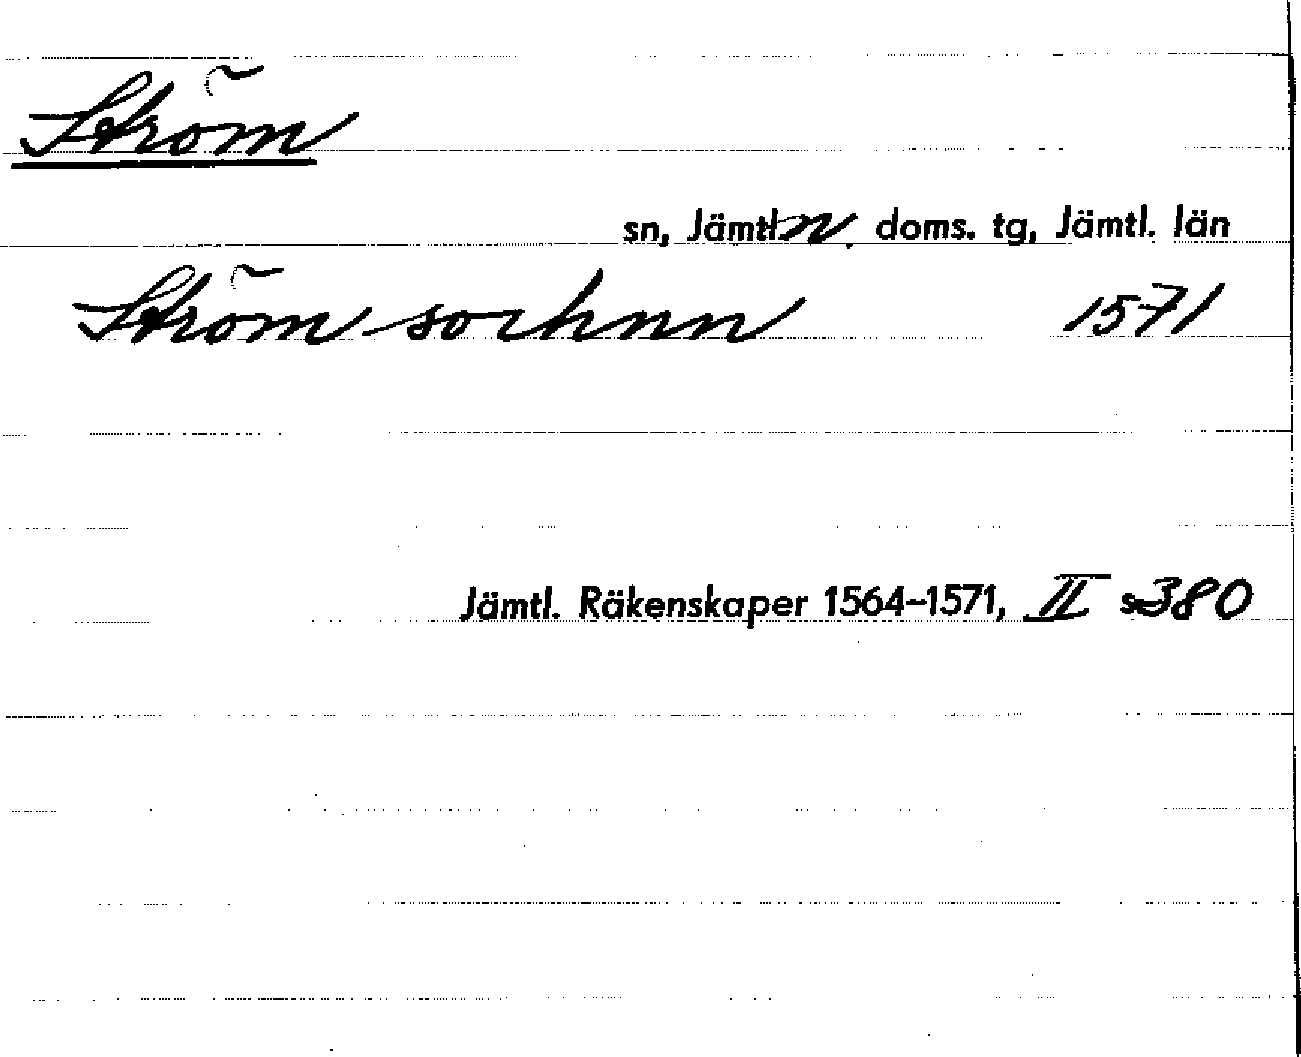 Ström
sn, Jämtl. n. doms. tg, Jämtl. län
Ström sochnn 1571
Jämtl. Räkenskaper 1564–1571, II s 380